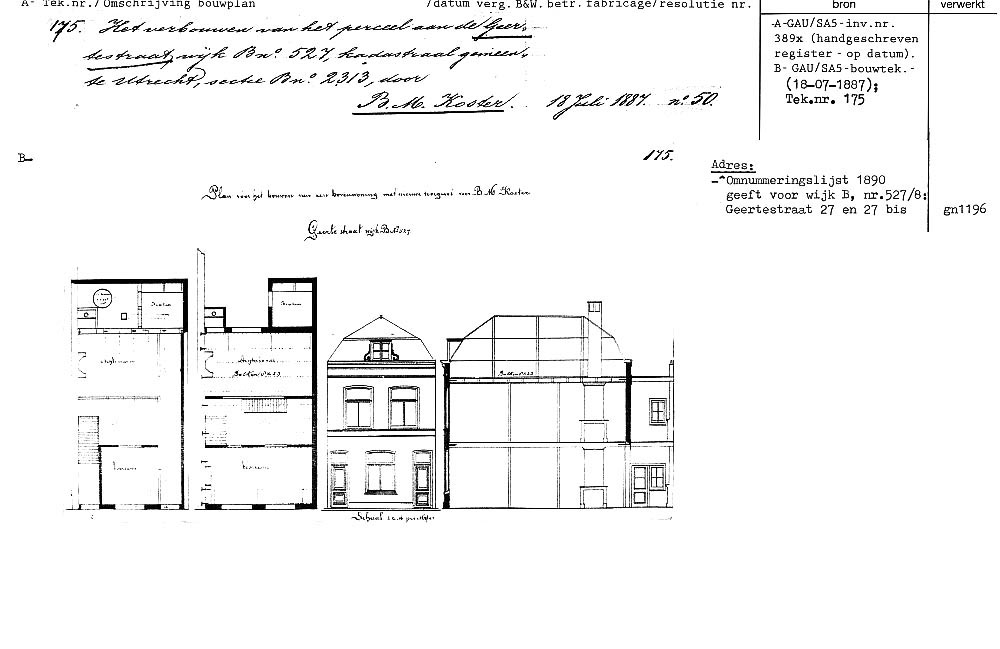 A- Tek.nr./Omschrijving bouwplan /datum verg. B&W.betr.fabricage/resolutie nr. bron verwerkt
175. Het verbouwen van het perceel aan de Geer-
testraat, wijk B nº 527, kadastraal gemeen-
te Utrecht, sectie B nº 2313, door
B. M. Koster. 18 Juli 1887. nº 50.
-A-GAU/SA5-inv.nr.
389x (handgeschreven
register - op datum).
B- GAU/SA5-bouwtek.-
(18-07-1887);
Tek.nr. 175
B- 175.
Plan voor het bouwen van een bovenwoning met nieuwe voorgevel voor B. M. Koster
Geertestraat wijk B. Nº 527
Adres:
-^Omnummeringslijst 1890
geeft voor wijk B, nr.527/8:
Geertestraat 27 en 27 bis gn1196
Schaal